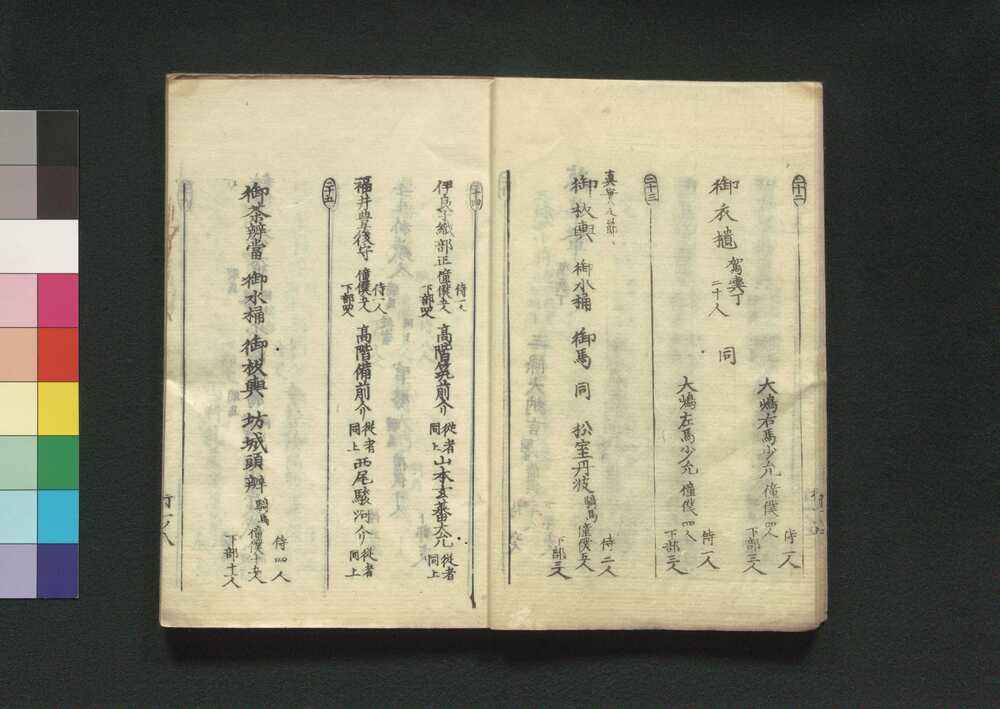 二十二
御衣櫃 駕輿丁 二十人
同
大嶋右馬少允 僮僕四人
侍一人
下部三人
大嶋左馬少允 僮僕四人
侍一人
下部三人
二十三
御板輿 御水桶 御馬 同 松室丹波 騎馬 僮僕五人
侍二人
下部三人
二十四
伊良子織部正 僮僕五人
侍一人
下部四人
高階筑前介 従者同上
山本玄蕃大允 従者同上
福井豊後守 僮僕五人
侍一人
下部四人
高階備前介 従者同上
西尾駿河介 従者同上
二十五
御茶辨當 御水桶 御板輿 坊城頭辨 騎馬
侍四人
僮僕十五人
下部十一人